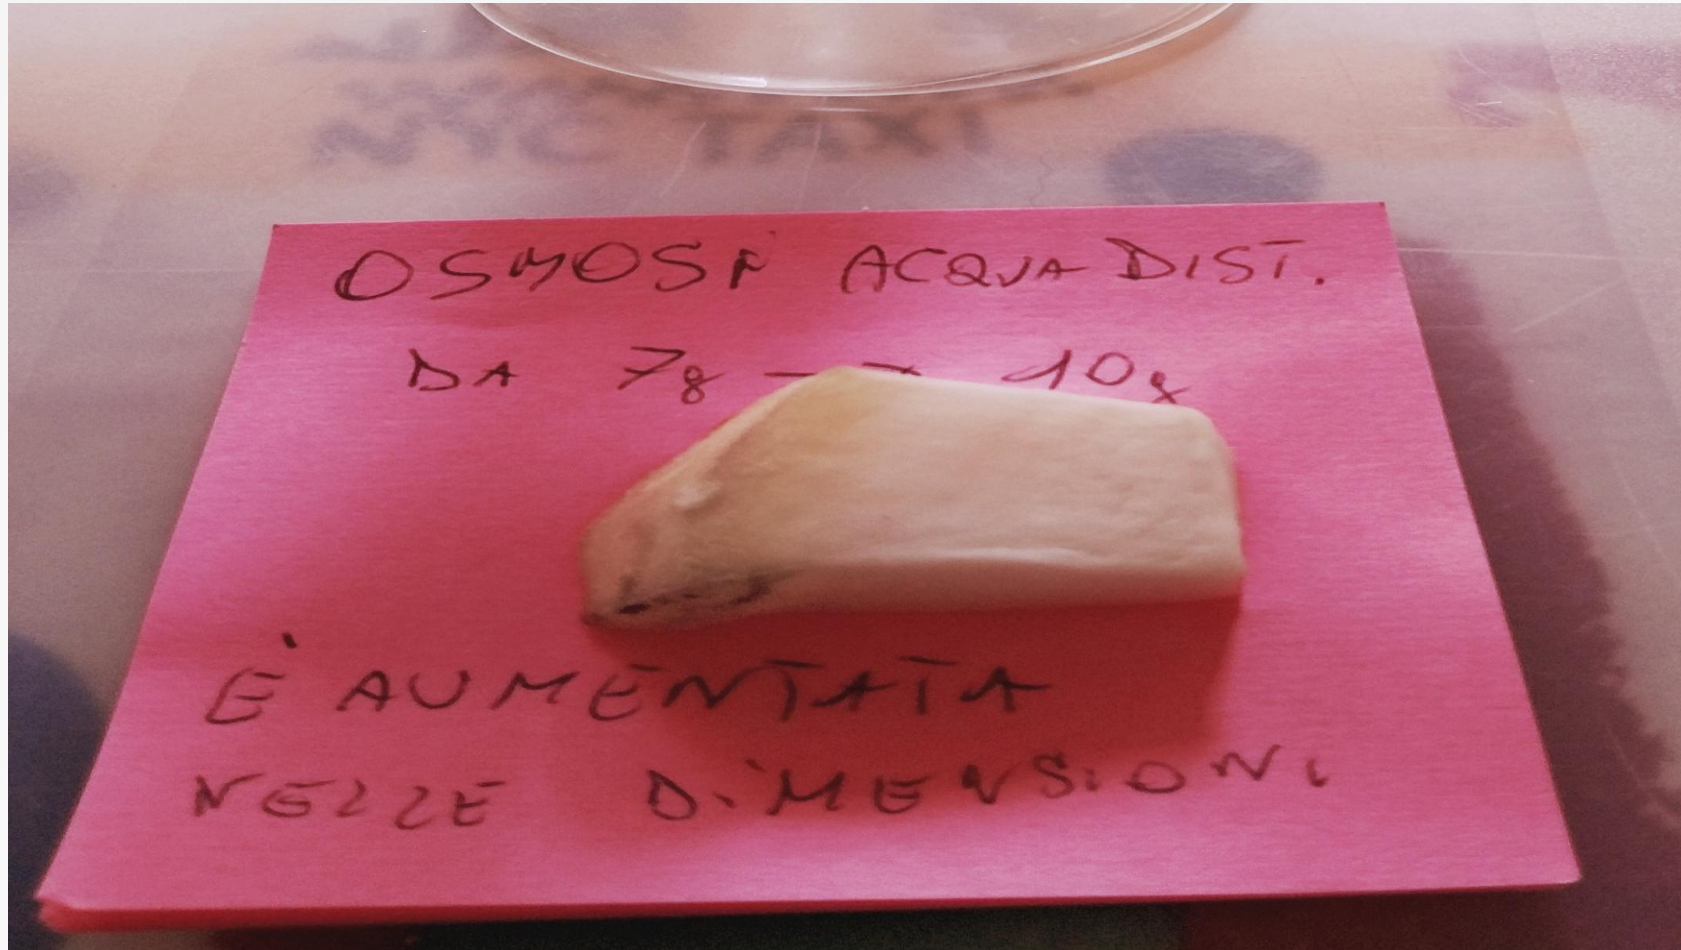 NYC TAXI
OSMOSI ACQUA DIST.
DA 7g → 10g
È AUMENTATA
NELLE DIMENSIONI